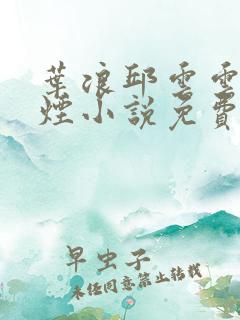 葉浪邱雲雲
煙小說免費
早虫子
未经同意禁止转载